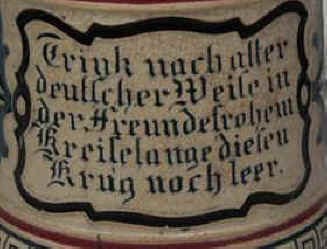 Trink nach alter
deutscher Weise in
der Freunde frohem
Kreise lange diesen
Krug noch leer.